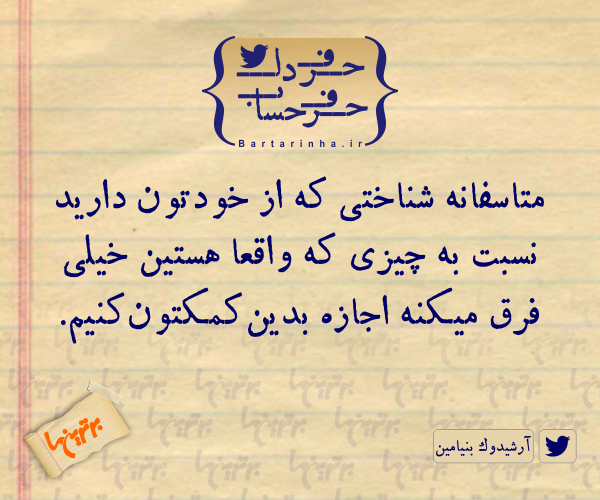 حرف دل
حرف حساب
Bartarinha.ir
متاسفانه شناختی که از خودتون دارید
نسبت به چیزی که واقعا هستین خیلی
فرق میکنه اجازه بدین کمکتون کنیم.
برترین‌ها
آرشیدوک بنیامین